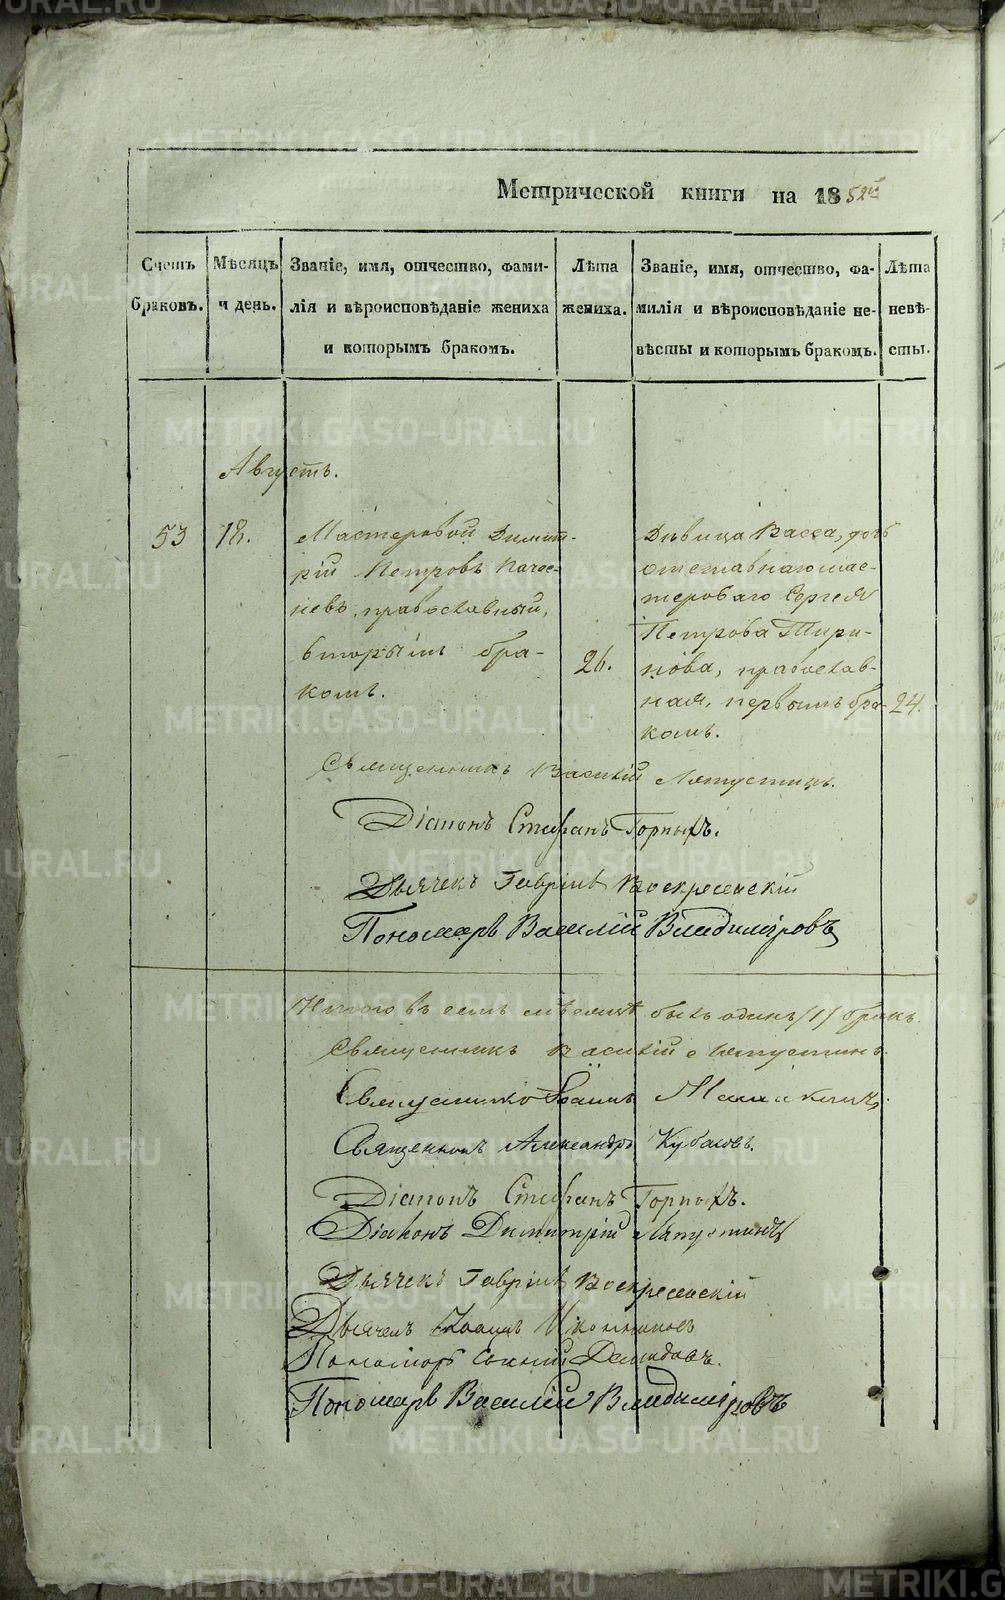 METRIKI.GASO-URAL.RU
Метрической книги на 1852й
Счетъ браковъ.
Мѣсяцъ и день.
Званіе, имя, отчество, фами-
лія и вѣроисповѣданіе жениха
и которымъ бракомъ.
Лѣта жениха.
Званіе, имя, отчество, фа-
милія и вѣроисповѣданіе не-
вѣсты и которымъ бракомъ.
Лѣта невѣ-
сты.
Августъ.
53
18.
Мастеровой Димит-
рій Петровъ
православный,
вторымъ бра-
комъ.
26.
Дѣвица Васса, дочь
отставнаго мас-
тероваго Сергея
Петрова
православ-
ная, первымъ бра-
комъ.
24.
Священникъ Василій Ляпустинъ.
Діаконъ Стефанъ Горныхъ.
Дьячекъ Гавріилъ Воскресенскій
Пономарь Василій Владиміровъ
Итого въ семъ мѣсяцѣ былъ одинъ /1/ бракъ.
Священникъ Василій Ляпустинъ.
Священникъ Іоаннъ
Священникъ Александръ
Діаконъ Стефанъ Горныхъ.
Діаконъ Димитрій Ляпустинъ
Дьячекъ Гавріилъ Воскресенскій
Дьячекъ Іоаннъ Иконниковъ
Пономарь Демидовъ.
Пономарь Василій Владиміровъ